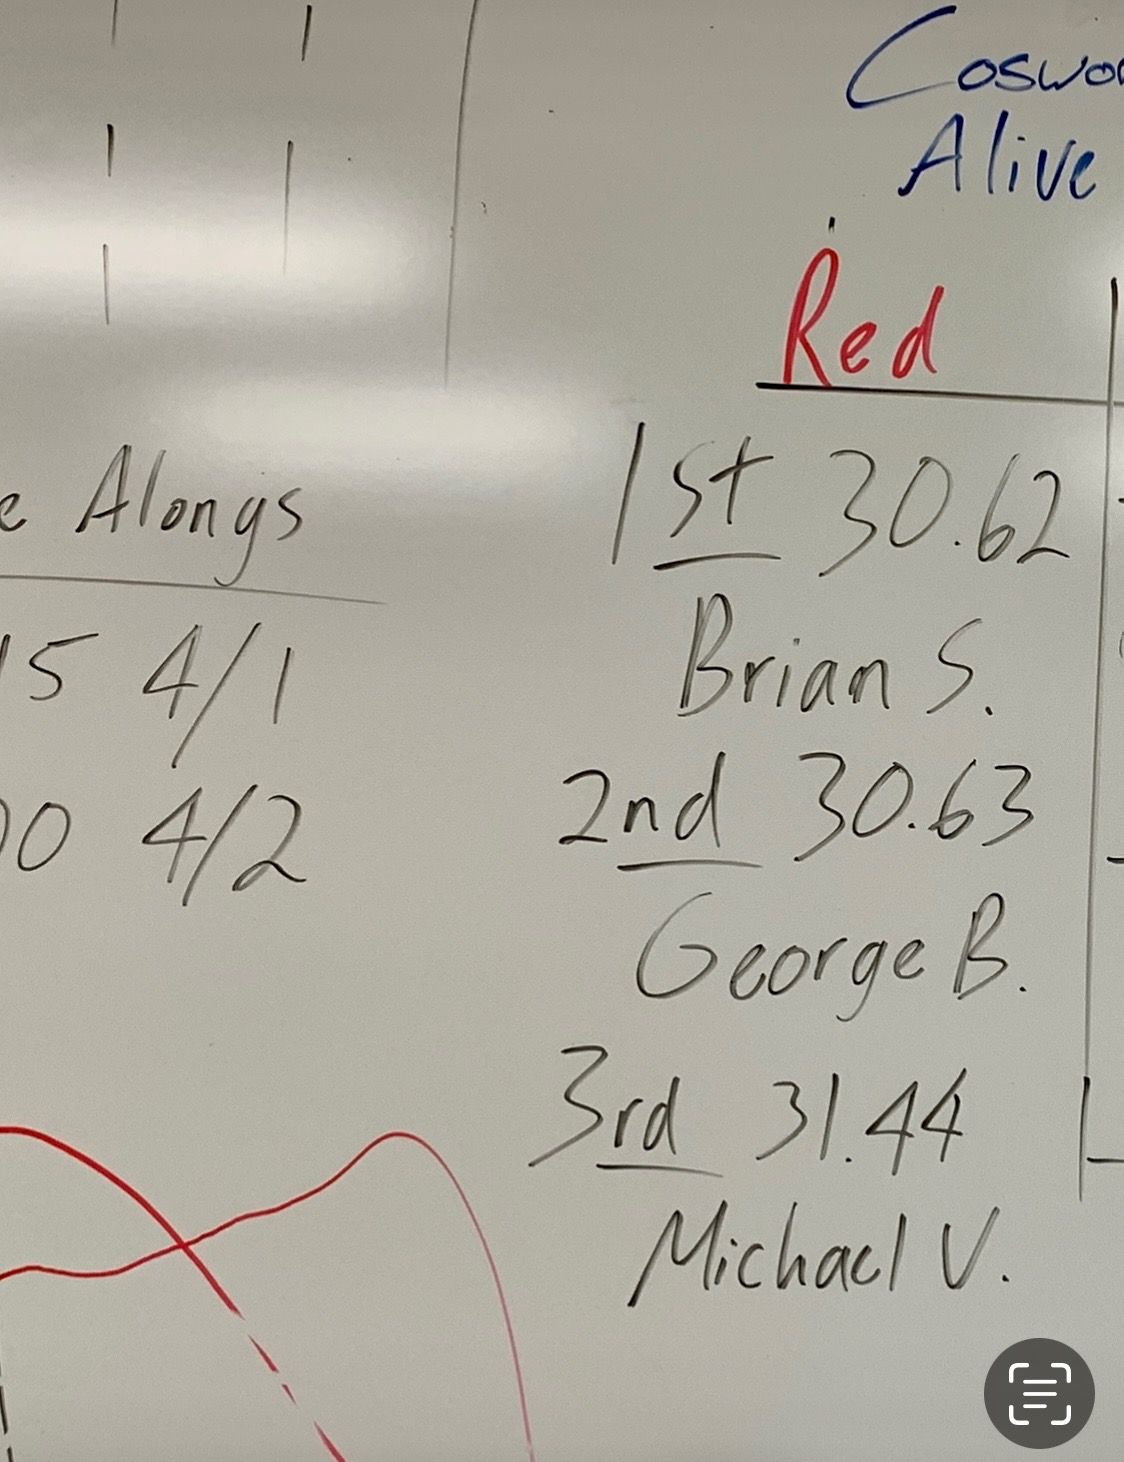 Alive
Red
Alongs
1st 30.62
Brian S.
15 4/1
2nd 30.63
4/2
George B.
3rd 31.44
Michael V.